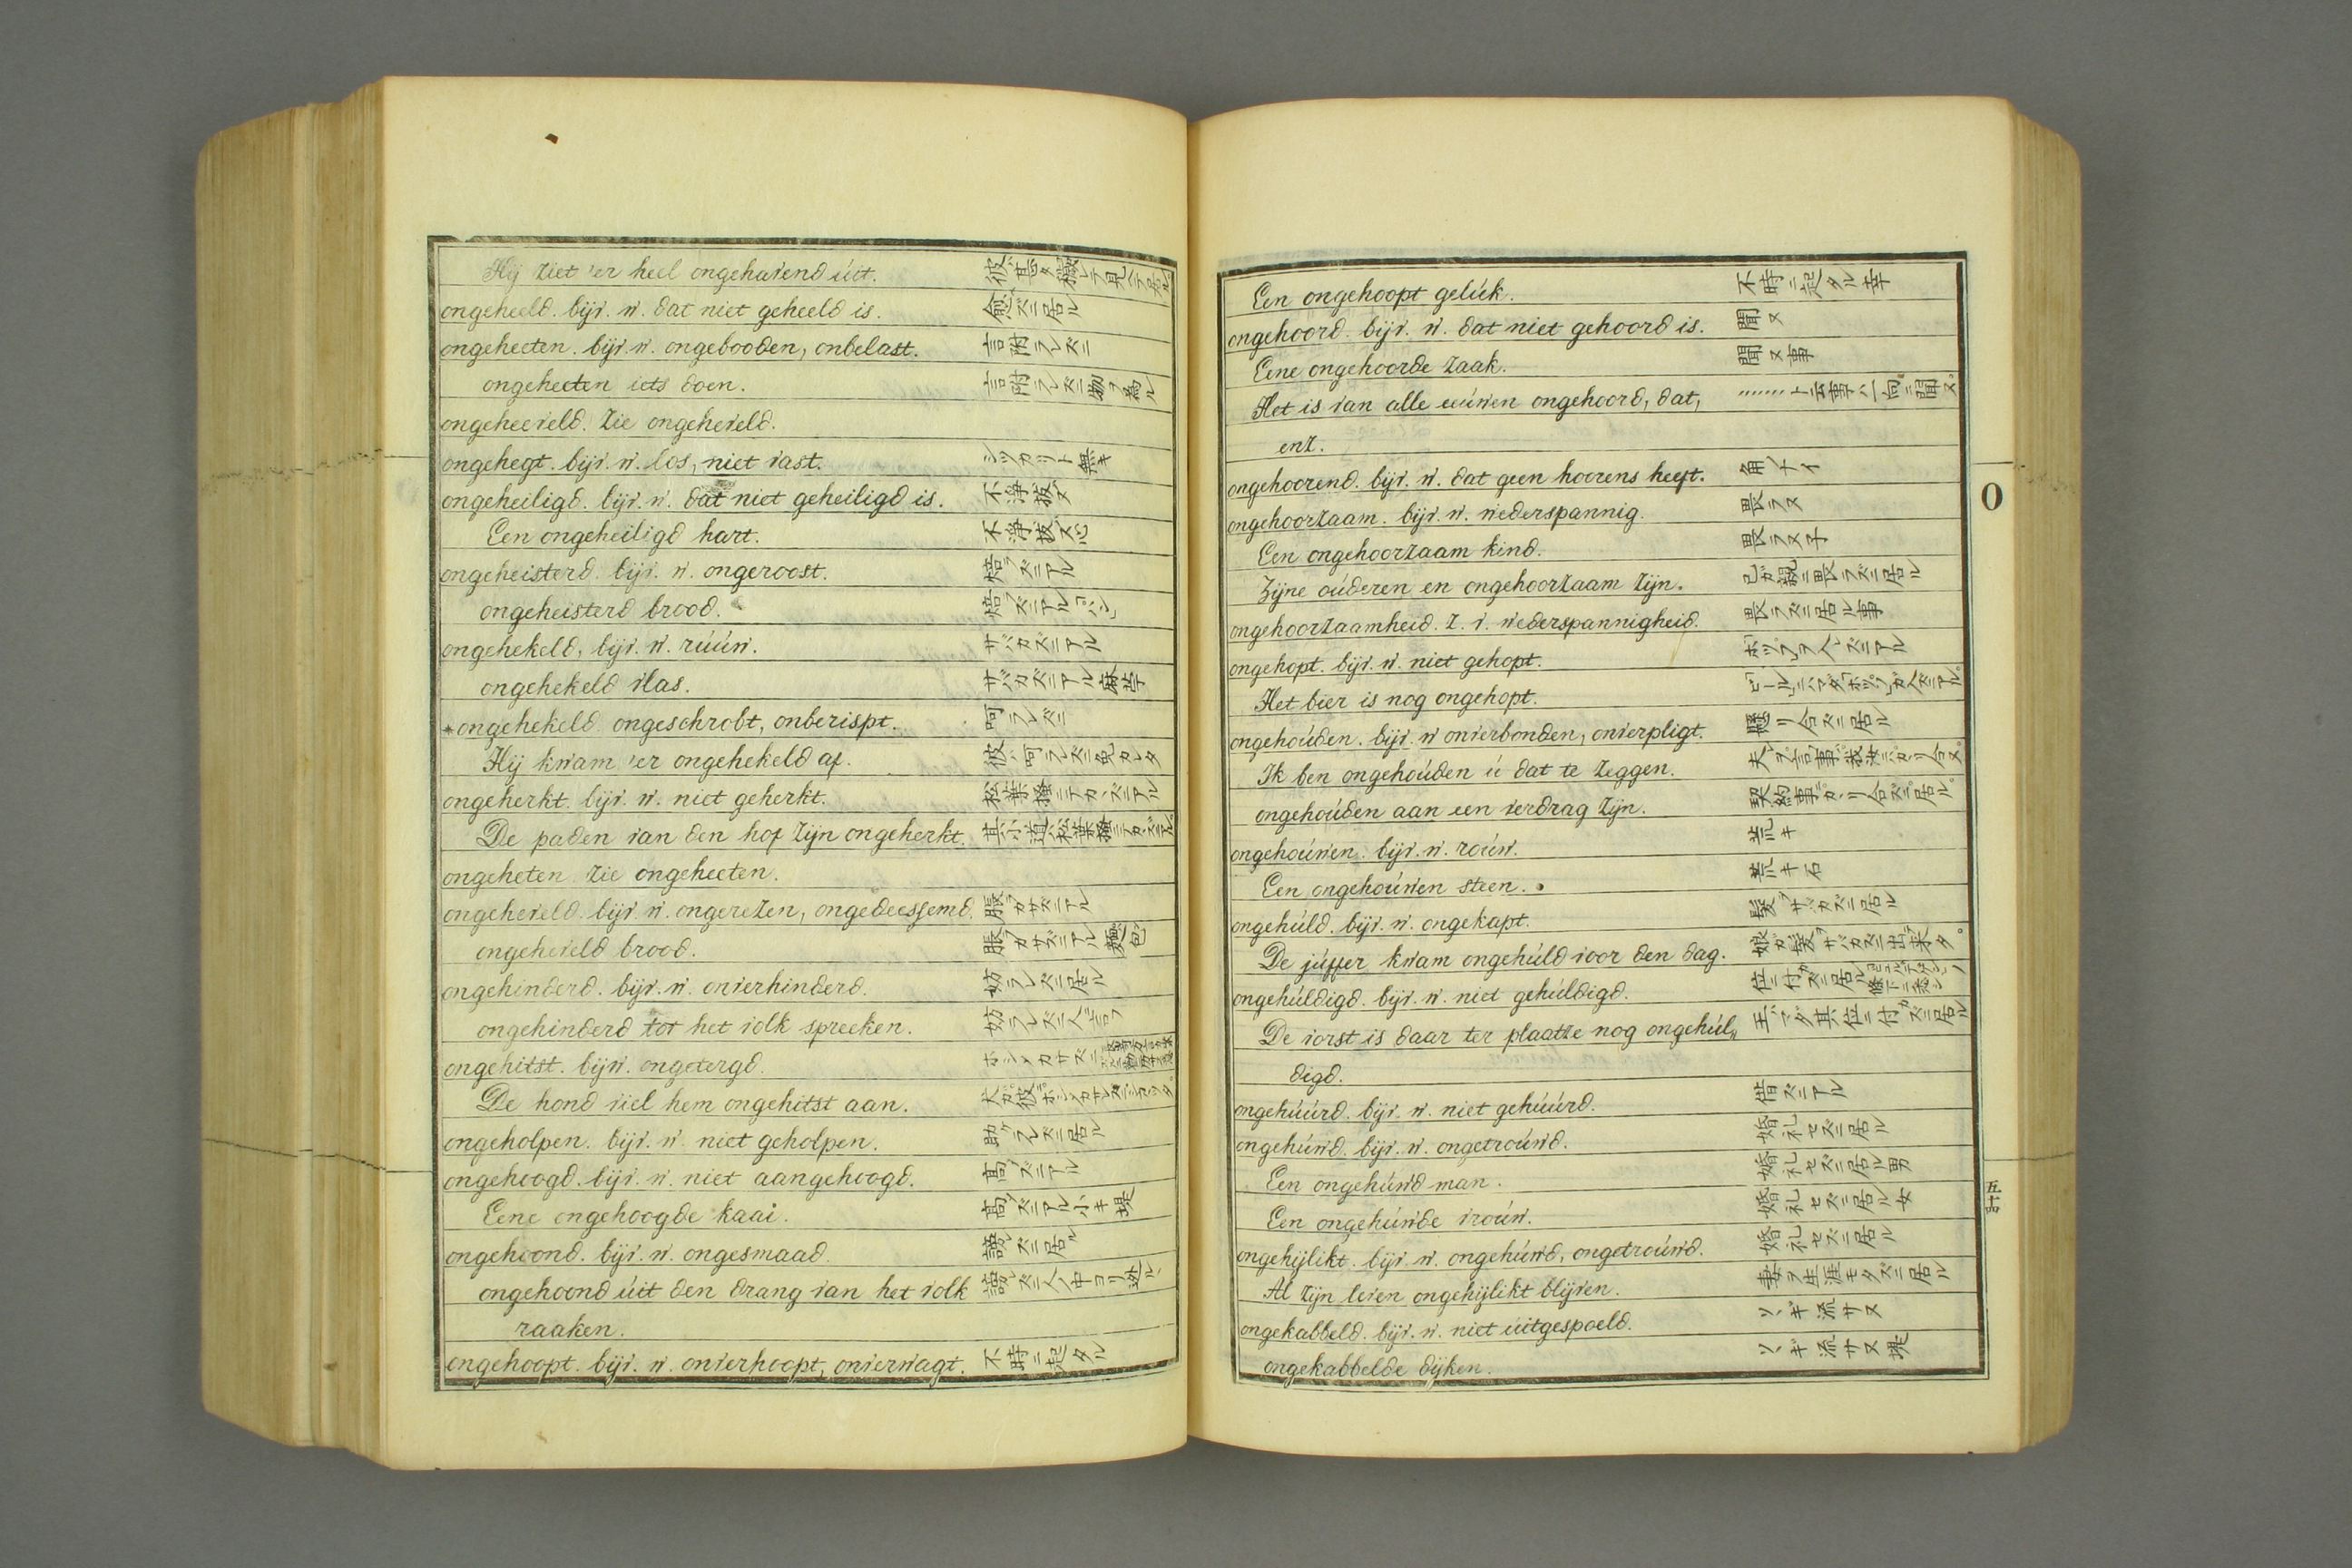 Hij ziet 'er heel ongehavend úit. 彼ハ甚タ檄レテ見ヘテ居ル
ongeheeld. bijv. w. dat niet geheeld is. 愈ズニ居ル
ongeheeten. bijv. w. ongebooden, onbelast. 言附ラレズニ
ongeheeten iets doen. 言附ラレズニ物ヲ為ル
ongeheeveld. zie ongeheveld.
ongehegt. bijv. w. los, niet vast. シツカリト無キ
ongeheiligd. bijv. w. dat niet geheiligd is. 不淨拔ヌ
Een ongeheiligd hart. 不淨拔ヌ心
ongeheisterd. bijv. w. ongeroost. 焙ズニアル
ongeheisterd brood. 焙ズニアル「パン」
ongehekeld, bijv. w. rúúw. サバカズニアル
ongehekeld vlas. サバカズニアル麻苧
*ongehekeld ongeschrobt, onberispt. 呵ラレズニ
Hij kwam 'er ongehekeld af. 彼ハ呵ラレズニ免カレタ
ongeherkt. bijv. w. niet geherkt. 松葉掻ニテカヽズニアル
De paden van den hof zijn ongeherkt. 其小道ハ松葉掻ニテカヽズニアル
ongeheten zie ongeheeten.
ongeheveld. bijv. w. ongerezen, ongedeessemd. 脹ラカサズニアル
ongeheveld brood. 脹ラカサズニアル麺包
ongehinderd. bijv. w. onverhinderd. 妨ラレズニ居ル
ongehinderd tot het volk spreeken. 妨ラレズニ人ニ言フ
ongehitst. bijw. ongetergd. ホシメカサズニ
De hond viel hem ongehitst aan.
ongeholpen. bijv. w. niet geholpen. 助ケラレズニ居ル
ongehoogd. bijv. w. niet aangehoogd. 高メズニアル
Eene ongehoogde kaai. 高メズニアル小キ堤
ongehoond. bijv. w. ongesmaad. 謗レズニ居ル
ongehoond úit den drang van het volk 謗レズニ人中ヨリ遁ル
raaken.
ongehoopt. bijv. w. onverhoopt, onverwagt. 不時ニ起タル
Een ongehoopt gelúk. 不時ニ起タル幸
ongehoord. bijv. w. dat niet gehoord is. 聞ヌ
Eene ongehoorde zaak. 聞ヌ事
Het is van alle eeúwen ongehoord, dat, ……ト云事ハ一向ニ聞ヌ
enz.
ongehoorend. bijv. w. dat geen hoorens heeft. 角ノナイ
ongehoorzaam. bijv. w. wederspannig. 畏ラヌ
Een ongehoorzaam kind. 畏ラヌ子
Zijne oúderen en ongehoorzaam zijn. 己ガ親ニ畏ラズニ居ル
ongehoorzaamheid. z. v. wederspannigheid. 畏ラズニ居ル事
ongehopt. bijv. w. niet gehopt. 「ホツプ」ヲ入レズニアル
Het bier is nog ongehopt. 「ビール」ニハマダ「ホツプ」ガ入ズニアル
ongehoúden. bijv. w onverbonden, onverpligt. 懸リ合ズニ居ル
Ik ben ongehoúden ú dat te zeggen.
ongehoúden aan een verdrag zijn. 契約事ニカヽリ合ズニ居ル
ongehoúwen. bijv. w. roúw. 荒キ
Een ongehoúwen steen. 荒キ石
ongehúld. bijv. w. ongekapt. 髪ヲサバカズニ居ル
De júffer kwam ongehúld voor den dag. 娘ガ髪ヲサバカズニ出来タ
ongehúldigd. bijv. w. niet gehúldigd. 位ニ付カズニ居ル
De vorst is daar ter plaatze nog ongehúl„ 王ハマダ其位ニ付カズニ居ル
digd.
ongehúúrd. bijv. w. niet gehúúrd. 借ズニアル
ongehúwd. bijv. w. ongetroúwd. 婚礼セズニ居ル
Een ongehúwd man. 婚礼セズニ居ル男
Een ongehúwde vroúw. 婚礼セズニ居ル女
ongehijlikt. bijv. w. ongehúwd, ongetroúwd. 婚礼セズニ居ル
Al zijn leven ongehijlikt blijven. 妻ヲ生涯モタズニ居ル
ongekabbeld. bijv. w. niet úitgespoeld. ソヽギ流サヌ
ongekabbelde dijken. ソヽギ流サヌ堤
O